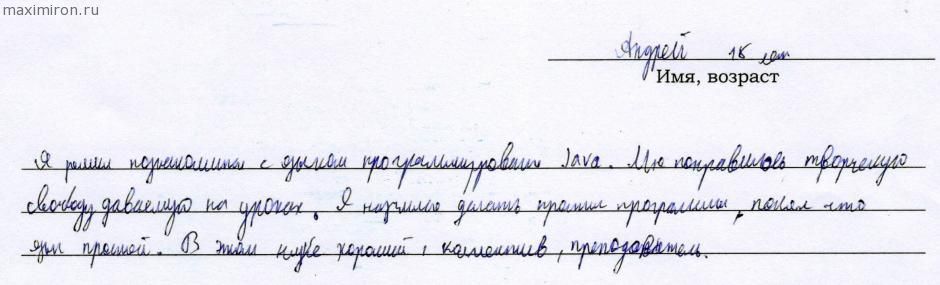 maximiron.ru
Андрей 15 лет
Имя, возраст
Я решил познакомится с языком программирования Java. Мне понравилось творческую
свободу даваемую на уроках. Я научился делать простые программы, понял что
язык простой. В этом клубе хороший, коллектив, преподаватель.